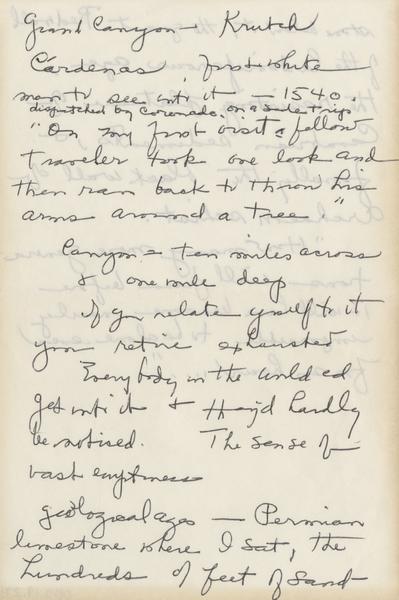 Grand Canyon — Krutch
Cárdenas, first white
man to see into it — 1540.
dispatched by Coronado, on a side trip.
"On my first visit a fellow
traveler took one look and
then ran back to throw his
arms around a tree."
Canyon = ten miles across
& one mile deep
If you relate yrself to it
you retire exhausted
Everybody in the world cd
get into it & they'd hardly
be noticed. The sense of
vast emptiness
geological ages — Permian
limestone where I sat, the
hundreds of feet of sand-